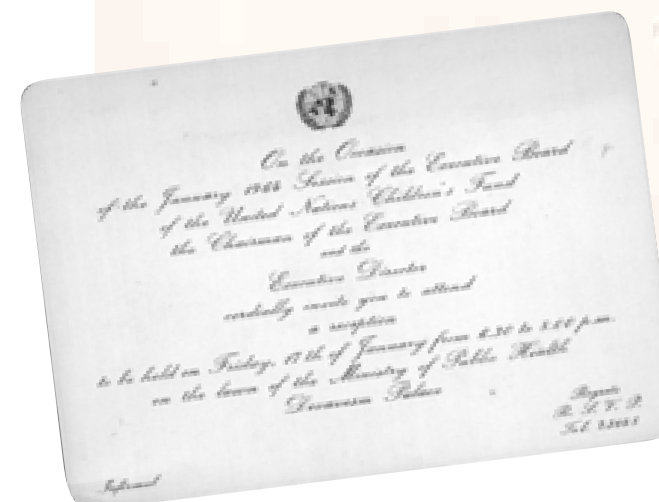 On the Occasion
of the January 1964 Session of the Executive Board
of the United Nations Children's Fund
the Chairman of the Executive Board
and the
Executive Director
cordially invite you to attend
a reception
to be held on Friday, 17th of January from to p.m.
on the lawn of the Ministry of Public Health
Palace
Regrets
R. S. V. P.
Tel.
Informal